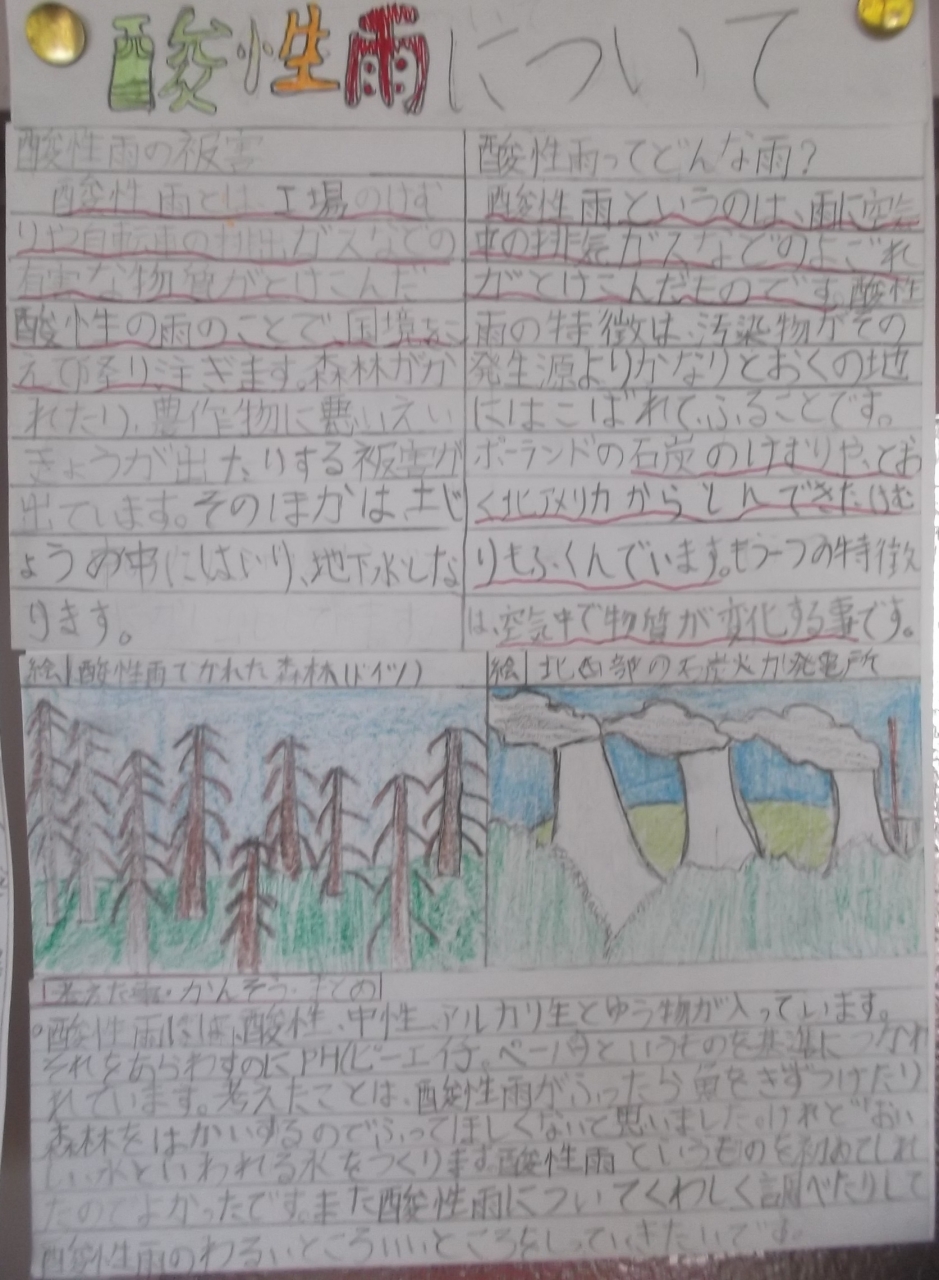 酸性雨について
酸性雨の被害
酸性雨とは、工場のけむ
りや自転車の排出ガスなどの
有害な物質がとけこんだ
酸性の雨のことで、国境をこ
えて降り注ぎます。森林がか
れたり、農作物に悪いえい
きょうが出たりする被害が
出ています。そのほかは、土じ
ょうの中にはいり、地下水とな
ります。
酸性雨ってどんな雨?
酸性雨というのは、雨に空気
車の排気ガスなどのよごれ
がとけこんだものです。酸性
雨の特徴は、汚染物がその
発生源よりかなりとおくの地
にはこばれて、ふることです。
ポーランドの石炭のけむりや、とお
く北アメリカからとんできたけむ
りもふくんでいます。もう一つの特徴
は、空気中で物質が変化する事です。
絵 酸性雨でかれた森林(ドイツ)
絵 北西部の石炭火力発電所
考えた事・かんそう・まとめ
酸性雨には、酸性、中性、アルカリ生とゆう物が入っています。
それをあらわすのにPH(ピーエイチ。ペーハー)というものを基準につかわ
れています。考えたことは、酸性雨がふったら魚をきずつけたり
森林をはかいするのでふってほしくないと思いました。けれどおい
しい水といわれる水をつくります。酸性雨というものを初めてしれ
たのでよかったです。また酸性雨についてくわしく調べたりして
酸性雨のわるいところいいところをしっていきたいです。